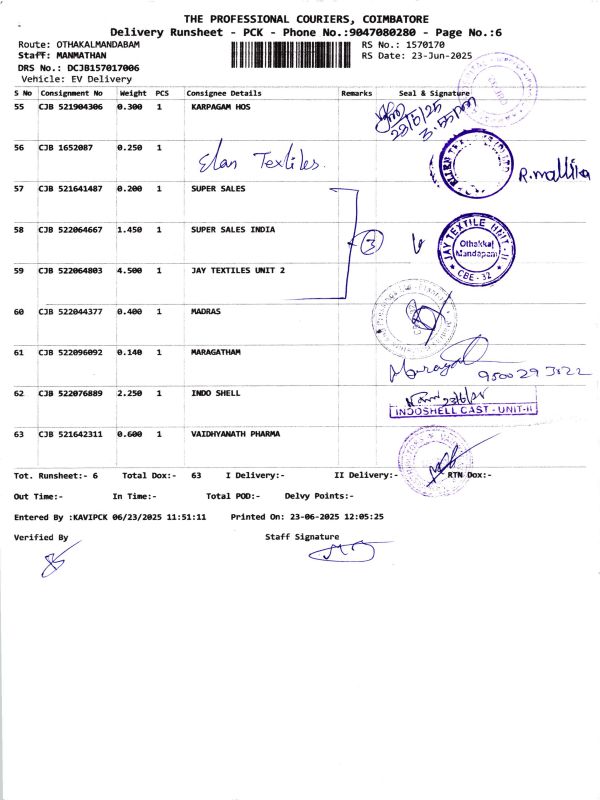 THE PROFESSIONAL COURIERS, COIMBATORE
Delivery Runsheet - PCK - Phone No.:9047080280 - Page No.:6
Route: OTHAKALMANDABAM RS No.: 1570170
Staff: MANMATHAN RS Date: 23-Jun-2025
DRS No.: DCJB157017006
Vehicle: EV Delivery
S No Consignment No Weight PCS Consignee Details Remarks Seal & Signature
55 CJB 521904306 0.300 1 KARPAGAM HOS
3.55pm
56 CJB 1652087 0.250 1 Elan Textiles. R.mallika
57 CJB 521641487 0.200 1 SUPER SALES
58 CJB 522064667 1.450 1 SUPER SALES INDIA 3
JAY TEXTILE UNIT-II
Othakkal
Mandapam
CBE - 32
59 CJB 522064803 4.500 1 JAY TEXTILES UNIT 2
60 CJB 522044377 0.400 1 MADRAS
61 CJB 522096092 0.140 1 MARAGATHAM
62 CJB 522076889 2.250 1 INDO SHELL
INDOSHELL CAST - UNIT-II
63 CJB 521642311 0.600 1 VAIDHYANATH PHARMA
Tot. Runsheet:- 6 Total Dox:- 63 I Delivery:- II Delivery:- RTN Dox:-
Out Time:- In Time:- Total POD:- Delvy Points:-
Entered By :KAVIPCK 06/23/2025 11:51:11 Printed On: 23-06-2025 12:05:25
Verified By Staff Signature